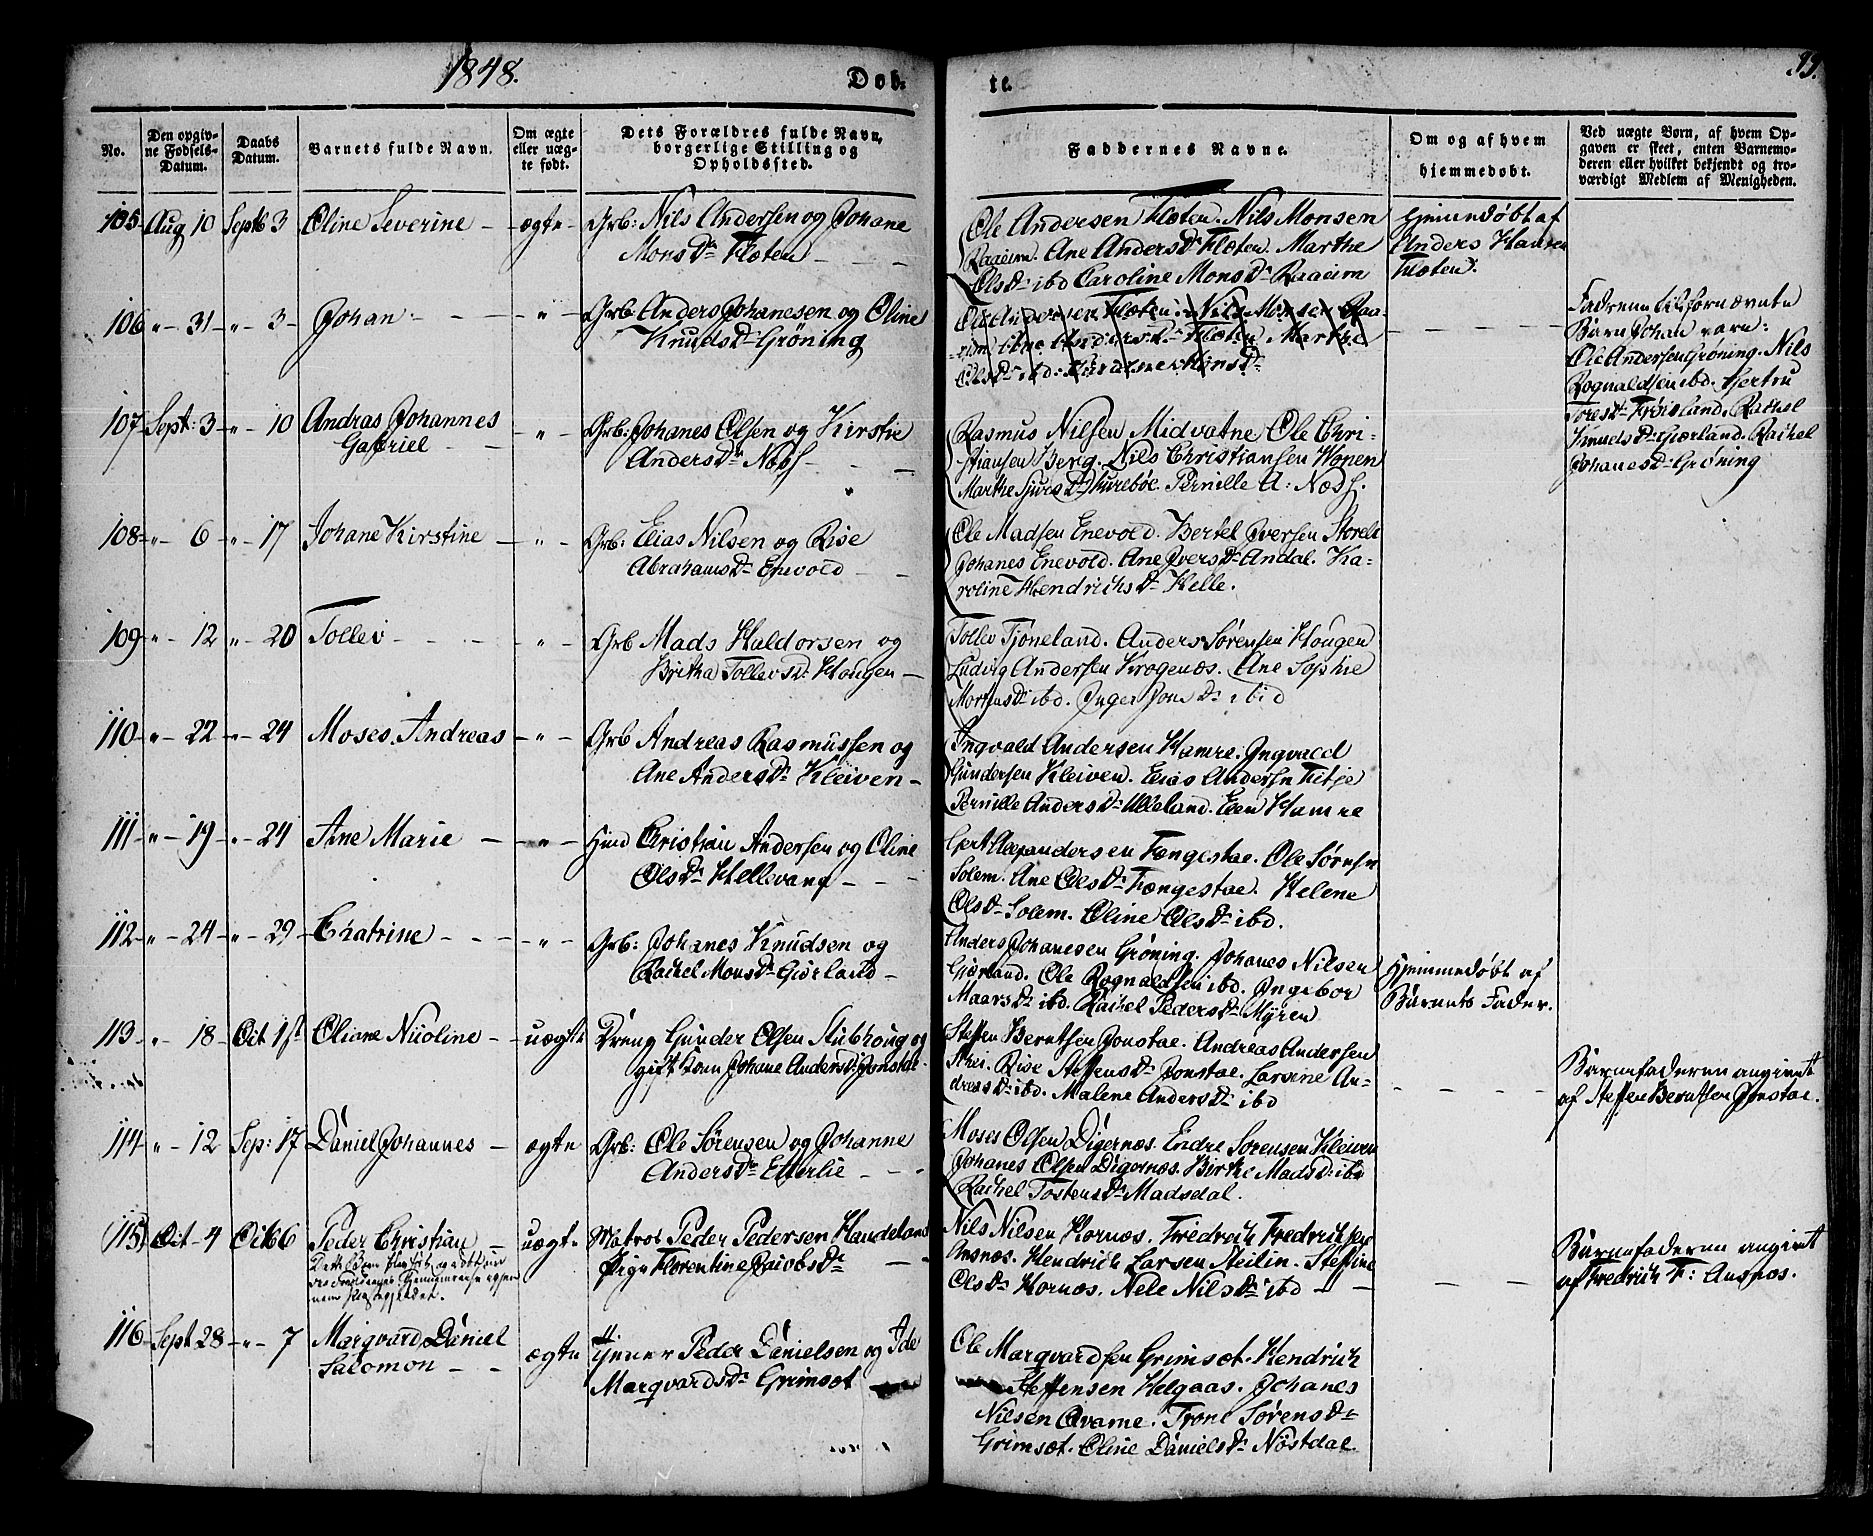 1848.
Døb-
te.
99.
No.
Den opgiv-
ne Fødsels-
Datum.
Daabs
Datum.
Barnets fulde Navn.
Om ægte
eller uæg-
te født.
Dets Forældres fulde Navn,
borgerlige Stilling og
Opholdssted.
Faddernes Navne.
Om og af hvem
hjemmedøbt.
Ved uægte Børn, af hvem Op-
gaven er skeet, enten Barnemo-
deren eller hvilket bekjendt og tro-
værdigt Medlem af Menigheden.
105 Aug 10 Septb 3 Oline Severine - ægte - Grb: Nils Andersen og Johane
Mons Dr Floten
Ole Andersen Floten. Nils Monsen
Raaeim. Ane Anders Dr Floten. Marthe
Ols Dr ibd Caroline Mons Dr Raaeim
Hjemmedøbt af
Anders Hansen
Floten.
106 " - 31 - " - 3 - Johan - " - Grb Anders Johanesen og Oline
Knuds Dr Grøning
Ole Andersen Floten. Nils Monsen Raa-
eim Ane Anders Dr Floten Marthe
Ols Dr ibd: Caroline Mons Dr
Fadrene til fornævnte
Barn Johan vare:
Ole Andersen Grøning. Nils
Rognaldsen ibd. Gjertru
Tores Dr Frøisland. Rachel
Knuds Dr Gjørland. Rachel
Johanes Dr Grøning
107 Sept: 3 " - 10 Andras Johannes
Gabriel - " - Grb: Johanes Olsen og Kirstie
Anders Dr Næss
Rasmus Nilsen Midvatne Ole Chri-
stiansen Berg. Nils Christiansen Vonen
Marthe Sjurs Dr Hurebøe. Pernille A: Næss.
108 " - 6 " - 17 Johane Kirstine - " - Grb: Elias Nilsen og Rise
Abrahams Dr Enevold
Ole Madsen Enevold. Bertel Iversen
Johanes Enevold. Ane Ivers Dr Andal. Ka-
roline Hendrichs Dr Helle.
109 " - 12 " - 20 Tollev - " - Grb Mads Haldorsen og
Britha Tollevs Dr Hougen -
Tollev Tjoneland. Anders Sørensen Hougen
Ludvig Andersen Krogenæs. Ane Sophie
Mortens Dr ibd. Inger Jons Dr ibid
110 " - 22 - " - 24 Moses. Andreas - " - Grb Andreas Rasmussen og
Ane Anders Dr Kleiven -
Ingvald Andersen Hamre. Ingvald
Gundersen Kleiven. Elias Andersen Titje
Pernille Anders Dr Ulleland. Elen Hamre
111 " - 19 - " - 24 Ane Marie - " - Hmd Christian Andersen og Oline
Ols Dr Hellevang
Gert Alexandersen Fængestae. Ole Sørensen
Solem. Ane Ols Dr Fængestae. Helene
Ols Dr Solem. Oline Ols Dr ibd.
112 " - 24 - " - 29 - Chatrine - " - Grb: Johanes Knudsen og
Rachel Mons Dr Gjørland -
Anders Johanesen Grøning. Johanes Nilsen
Gjørland. Ole Rognaldsen ibd. Ingebor
Maars Dr ibd. Rachel Peders Dr Myren
Hjemmedøbt af
Barnets Fader.
113 " - 18 - Oct 1st Oliane Nicoline - uægte Dreng Gunder Olsen Stubhoug og
gift Kone Johane Anders Dr Jonstae.
Steffen Berntsen Jonstae. Andreas Andersen
Skei. Rise Steffens Dr Jonstae. Larsine An-
dreas Dr ibd. Malene Anders Dr ibd
Barnefaderen angivet
af Steffen Berntsen Jonstae.
114 " - 12 Sep: 17 Daniel Johannes - ægte Grb: Ole Sørensen og Johanne
Anders Dr Etterlie
Moses Olsen Digernæs. Endre Sorensen Kleiven
Johanes Olsen Digernæs. Birthe Mads Dr ibd
Rachel Tostens Dr Madsdal.
115 Oct - 4 Octb 6 Peder Christian - uægte Matros Peder Pedersen Haudeland
Pige Florentine Jacobs Dr
Nils Nilsen Hornæs. Friedrich Fredrichsen
Ansnæs. Hendrich Larsen Steilin. Steffine
Ols Dr Hornæs. Nele Nils Dr ibd -
Barnefaderen angivet
af Fredrich F: Ansnæs.
116 Sept 28 - " - 7 Marqvard Daniel
Salomon - ægte Peder Danielsen og Ide
Marqvards Dr Grimsøt
Ole Marqvardsen Grimsøt. Hendrich
Steffensen Helgaas. Johanes
Nilsen Qvame. Trone Sørens Dr
Grimsøt. Oline Daniels Dr Nøstdal